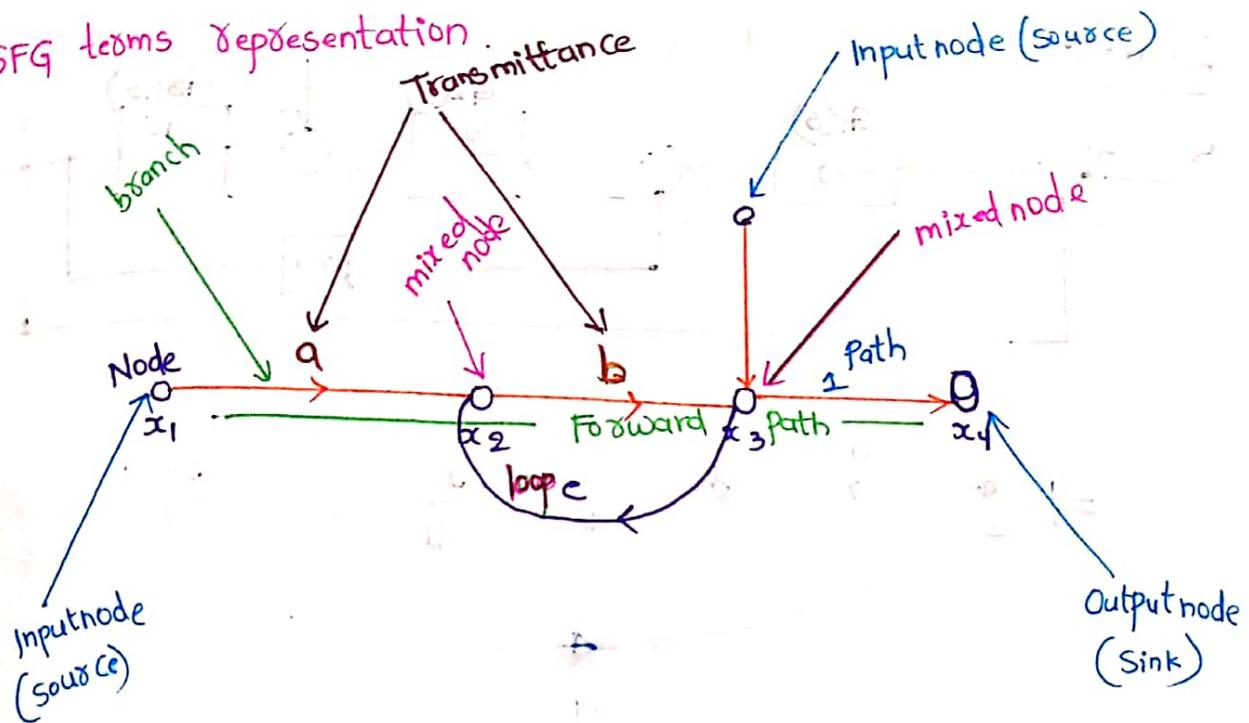 SFG terms representation.
Transmittance
Input node (source)
branch
mixed
node
mixed node
a
b
Node
1
Path
x1
x2
Forward
x3
Path
x4
loop c
Input node
(source)
Output node
(Sink)